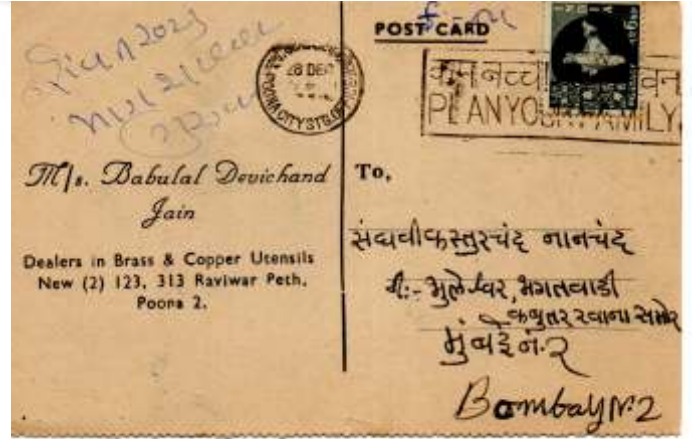 POST CARD
28 DEC
POONA CITY STG.
PLAN YOUR FAMILY
M/s. Babulal Devichand
Jain
Dealers in Brass & Copper Utensils
New (2) 123, 313 Raviwar Peth,
Poona 2.
To,
संघवी कस्तुरचंद नानचंद
ठी:- भुलेश्वर, भगतवाडी
कबुतर खाना समोर
मुंबई नं. २
Bombay No. 2